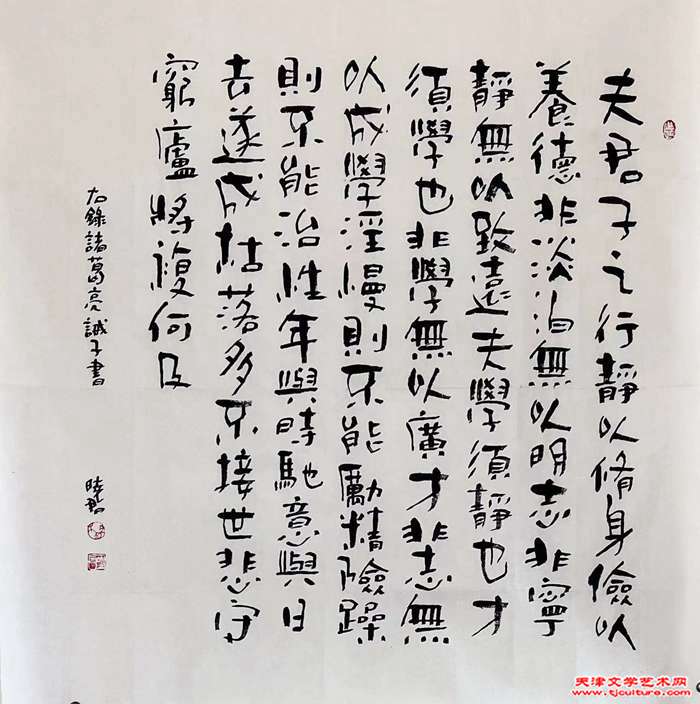 夫君子之行靜以脩身儉以
養德非淡泊無以明志非寧
靜無以致遠夫學須靜也才
須學也非學無以廣才非志無
以成學淫慢則不能勵精險躁
則不能治性年與時馳意與日
去遂成枯落多不接世悲守
窮廬將複何及
右錄諸葛亮誡子書
天津文学艺术网
www.tjculture.com